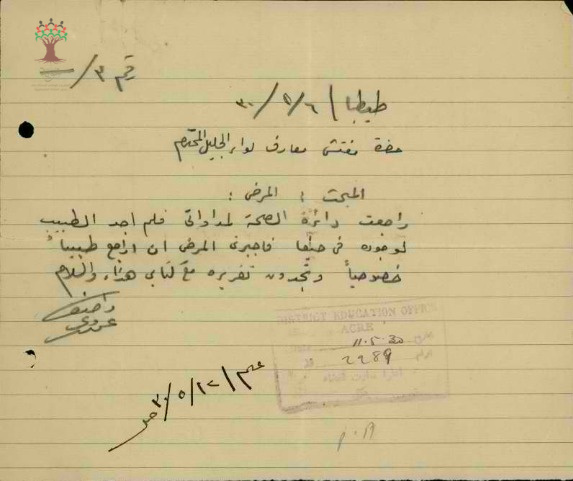 رقم ٣/
طيطبا / ٦/٥/٣٠
حضرة مفتش معارف لواء الجليل المحترم
المبحث : المرض :
راجعت دائرة الصحة لمداواتي فلم اجد الطبيب
لوجوده في حيفا فاجبرني المرض ان اراجع طبيباً
خصوصياً وتجدون تقريره مع كتابي هذا والسلام
DISTRICT EDUCATION OFFICE
ACRE
11.5.30
2289